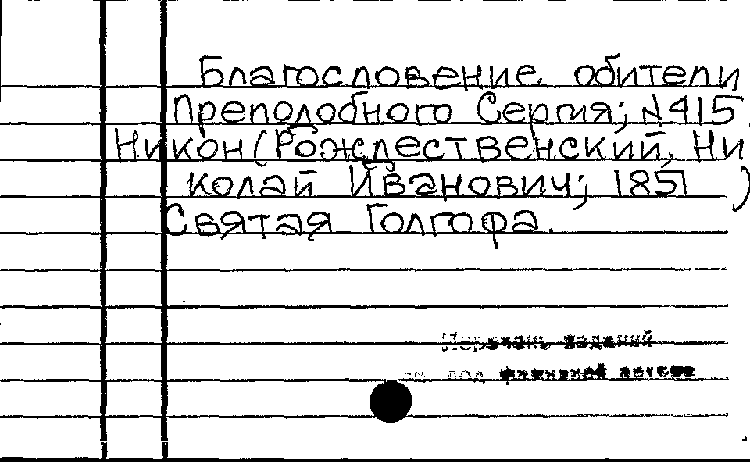 Благословение обители
Преподобного Сергия; №415.
Никон (Рождественский, Ни
колай Иванович; 1851 )
Святая Голгофа.
Перечень изданий
см. под